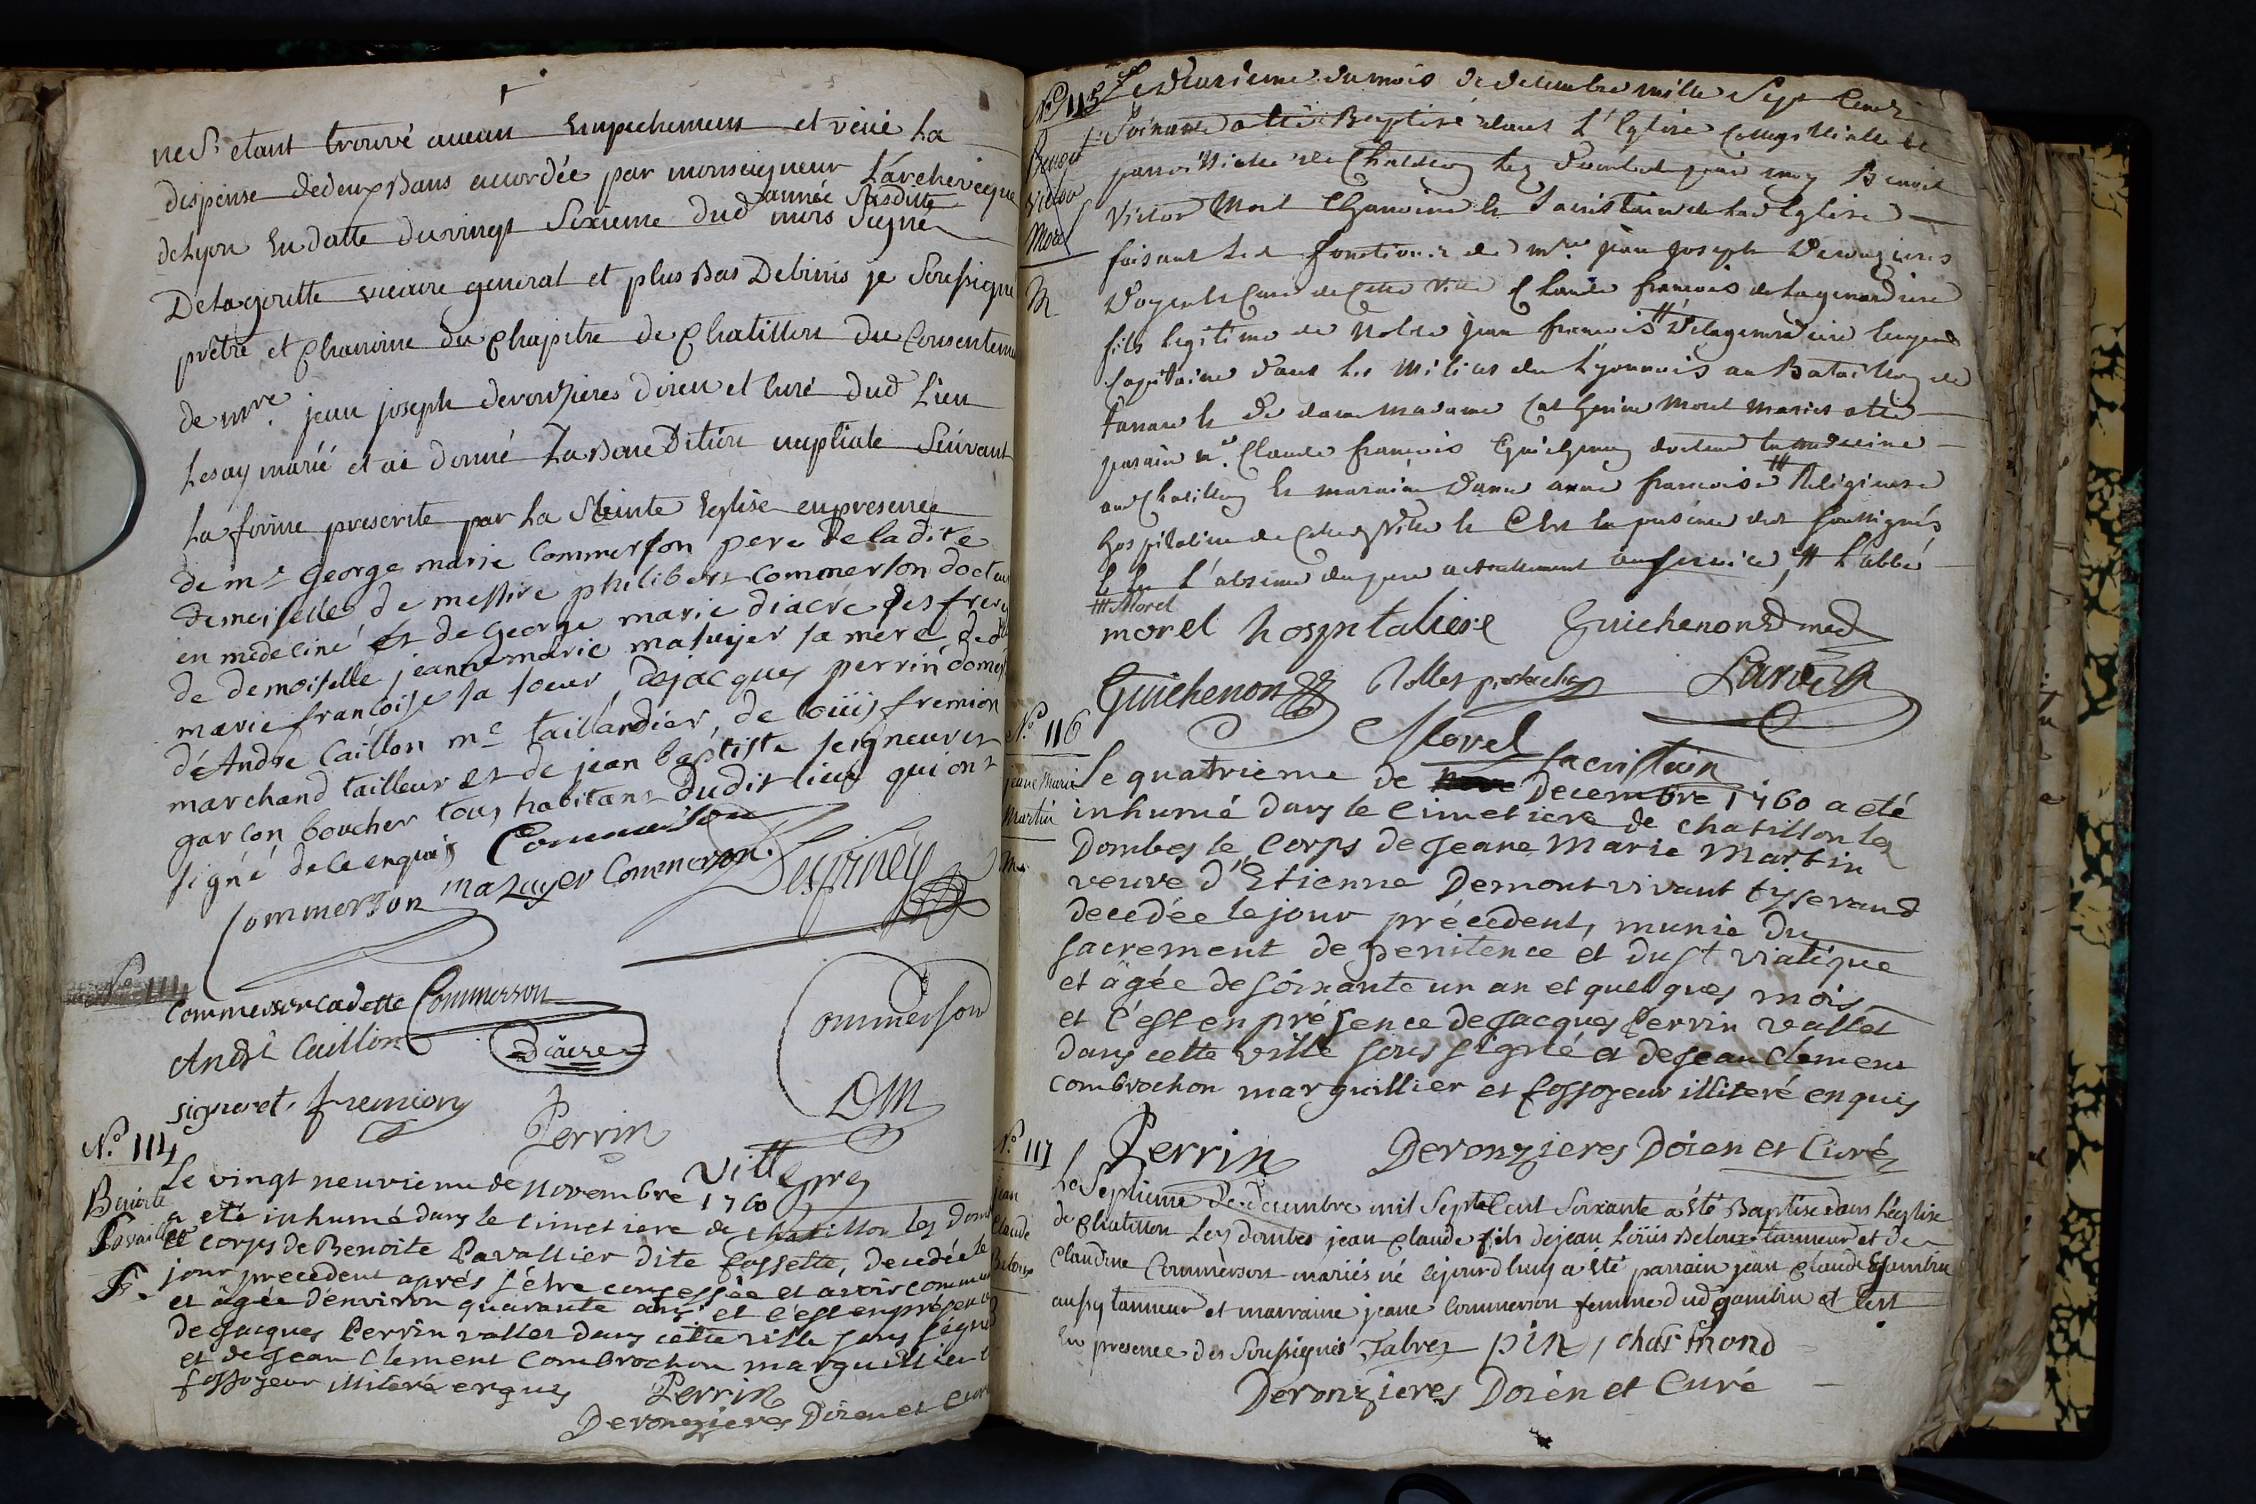 ne S.t etant trouvé aucun Empechement et veüe La
dispense dedeux Bans accordée par monseigneur L'archeveque
année Susditte
deLyon En datte duvingt Sixieme dud mois Signé
DeLagorette vicaire general et plus Bas Debinis je Soussigne
prêtre et chanoine du chapitre de chatillon du Consenteme
de mre. jean joseph deronzieres doien et Curé dud Lieu
Lesay marié et ai donné La Bene Dition nuptiale Suivant
La forme prescrite par La Steinte Eglise en presence
de mr George marie Commerson pere de la dite
demoiselle de messire philibert Commerson docteur
en medecine et de George marie diacre ses freres
de demoiselle jeanne marie mazuyer sa mere de dlle
marie francoise sa soeur, de jacques perrin domes
d'Andre Caillon me taillandier, de loüis fremion
marchand tailleur et de jean baptiste seigneuret
garcon boucher tous habitans dudit lieu qui ont
signé de ce enquis Commerson
Commerson mazuyer Commerson
No. 114
Commerson cadette Commerson
Diacre
Commerson
DM
André Caillon
signeret, fremion
Perrin
Villegre
No. 114
Benoite
Pavallier
Le vingt neuvieme de novembre 1760
a eté inhumé dans le cimetiere de chatillon les Dom
le corps de Benoite Pavallier dite fossette, decedée le
jour precedent aprés s'être confessée et avoir commu
et âgée d'environ quarante ans et c'est en présence
de Jacques Perrin vallet dans cette ville sous signé
et de Jean Clement Combrochon marguillier et
fossoyeur illiteré enquis
Perrin
Deronzieres Doien et Curé
No 115
Benoit
Victor
Morel
Le deuxieme du mois de decembre mille Sept Cent
Soixante a été Baptisé dans L'Eglise Collegiialle et
parroissialle de Chatillon les Dombes par moy Benoit
Victor Morel Chanoine et Sacristain de lad Eglise
faisant Les fonctions de mre jean joseph Deronzieres
Doyen et Curé de Cette Ville Claude francois delagenardiere
fils legitime de Noble jean francois # Delagenardiere
Capitaine dans les Milices du Lyonnois au Bataillon de
Tarare et de dame madame Catherine Morel mariés a eté
parain mr Claude francois Guichenon docteur en medecine
au Chatillon et maraine Dame anne francoise # Religieuse
hospitaliere de Cette Ville et C'est en presence des soussignés
Et En L'absence du pere actuellement au service, # L'abbé
## Morel
morel hospitaliere Guichenon D med
Guichenon Rollet
Morel
sacristain
No. 116
jeane Marie
Martin
Le quatrieme de Decembre 1760 a eté
inhumé dans le Cimetiere de chatillon les
Dombes le Corps de Jeane Marie Martin
veuve d'Etienne Demont vivant tisserand
decedée le jour précédent, munie du
sacrement de penitence et du St. viatique
et âgée de soixante un an et quelques mois
et C'est en présence de Jacques Perrin vallet
dans cette ville sous signé et de Jean Clement
Combrochon marguillier et fossoyeur illiteré enquis
Perrin Deronzieres Doien et Curé
No. 117
jean
Claude
Beloux
Le Septieme de decembre mil Sept Cent Soixante a été Baptisé dans L'église
de chatillon Les dombes jean claude fils de jean Loüis Beloux tanneur et de
Claudine Commerson mariés né aujourdhuy a été parrain jean claude Gambin
aussy tanneur et marraine jeane Commerson femme dud gambin et C'est
En presence des Soussignés Fabre, pin, charmond
Deronzieres Doien et Curé